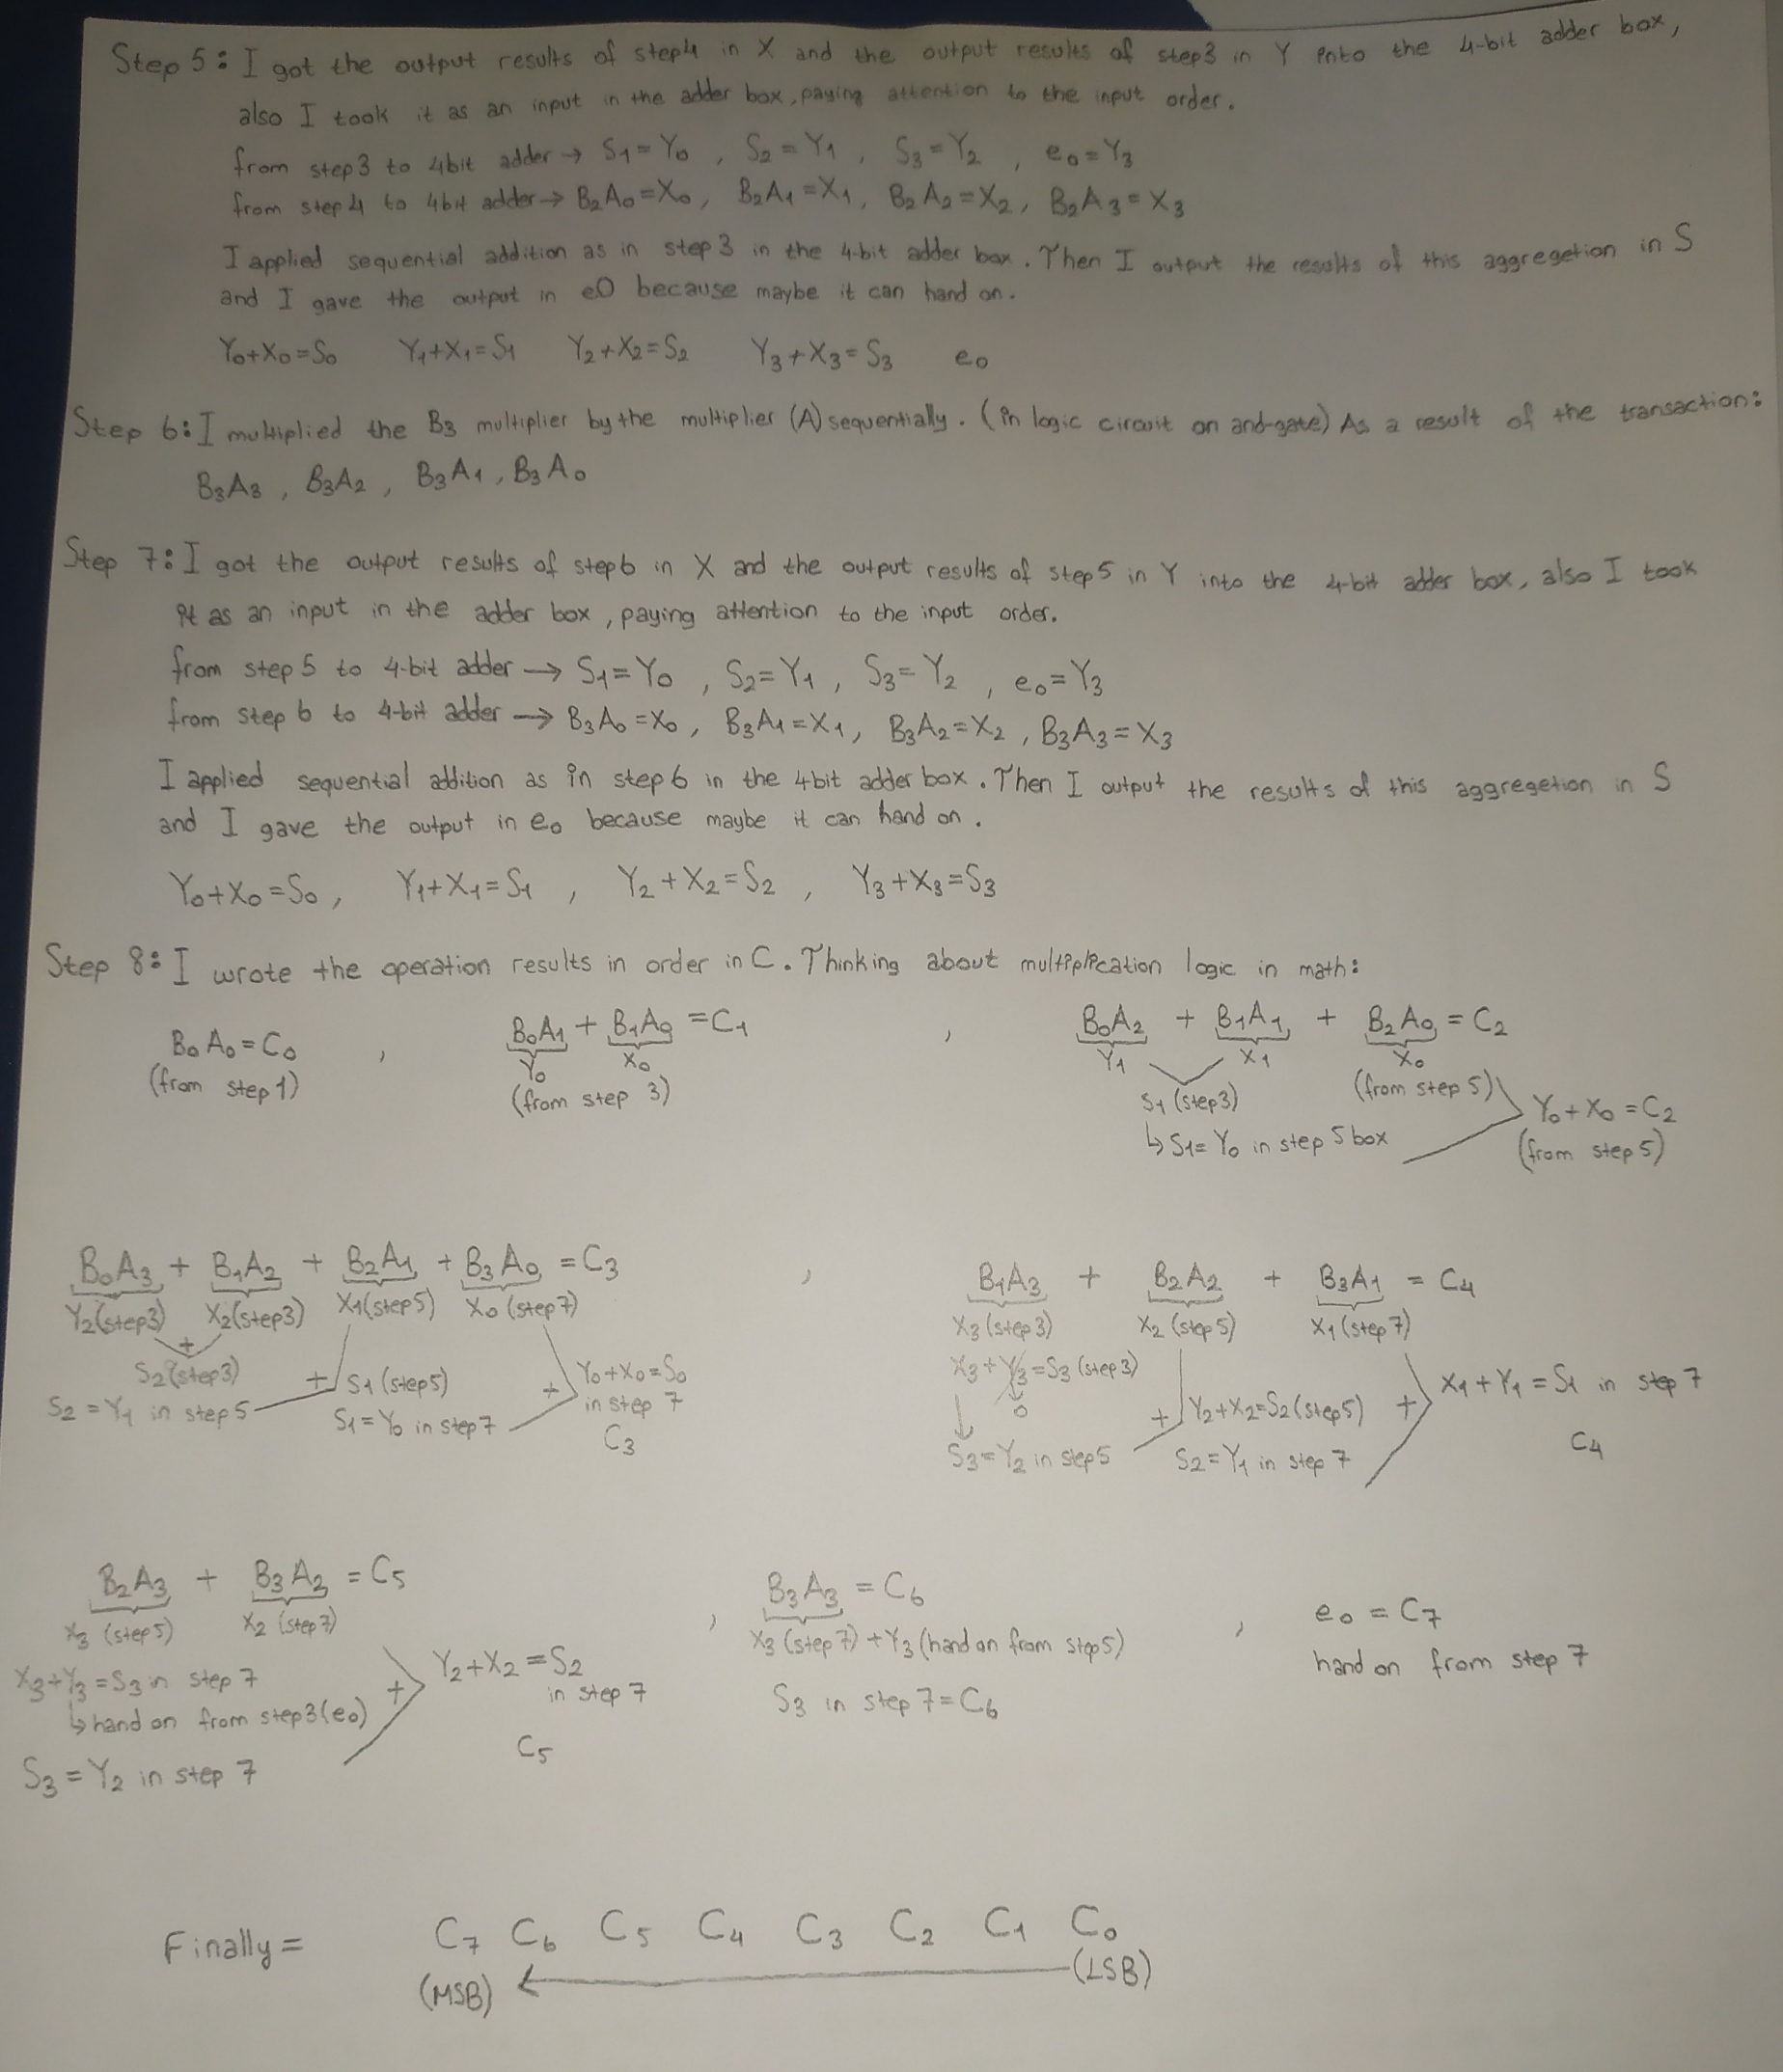 Step 5: I got the output results of step4 in X and the output results of step3 in Y into the 4-bit adder box,
also I took it as an input in the adder box, paying attention to the input order.
from step3 to 4bit adder → S1 = Y0 , S2 = Y1 , S3 = Y2 , e0 = Y3
from step4 to 4bit adder → B2A0 = X0, B2A1 = X1, B2A2 = X2, B2A3 = X3
I applied sequential addition as in step3 in the 4-bit adder box. Then I output the results of this aggregetion in S
and I gave the output in e0 because maybe it can hand on.
Y0+X0=S0 Y1+X1=S1 Y2+X2=S2 Y3+X3=S3 e0
Step 6: I multiplied the B3 multiplier by the multiplier (A) sequentially. (in logic circuit on and-gate) As a result of the transaction:
B3A3 , B3A2 , B3A1 , B3A0
Step 7: I got the output results of step6 in X and the output results of step5 in Y into the 4-bit adder box, also I took
it as an input in the adder box, paying attention to the input order.
from step5 to 4-bit adder → S1=Y0 , S2=Y1 , S3=Y2 , e0=Y3
from step 6 to 4-bit adder → B3A0=X0, B3A1=X1, B3A2=X2, B3A3=X3
I applied sequential addition as in step6 in the 4bit adder box. Then I output the results of this aggregetion in S
and I gave the output in e0 because maybe it can hand on.
Y0+X0=S0 , Y1+X1=S1 , Y2+X2=S2 , Y3+X3=S3
Step 8: I wrote the operation results in order in C. Thinking about multiplication logic in math:
B0A0=C0 , B0A1 + B1A0 = C1 , B0A2 + B1A1 + B2A0 = C2
(from step1) Y0 X0 Y1 X1 X0
(from step 3) S1 (step3) (from step5)
↳ S1=Y0 in step5 box Y0+X0=C2
(from step5)
B0A3 + B1A2 + B2A1 + B3A0 = C3 , B1A3 + B2A2 + B3A1 = C4
Y2(step3) X2(step3) X1(step5) X0(step7) X3(step3) X2(step5) X1(step7)
+ S2(step3) + S1(step5) + Y0+X0=S0 X3+Y3=S3(step3)
S2=Y1 in step5 S1=Y0 in step7 in step 7 0 + Y2+X2=S2(step5) + X1+Y1=S1 in step 7
C3 S3=Y2 in step5 S2=Y1 in step 7 C4
B2A3 + B3A2 = C5 , B3A3 = C6 , e0 = C7
X3 (step5) X2 (step7) X3(step7)+Y3(hand on from step5) hand on from step 7
X3+Y3=S3 in step 7 + Y2+X2=S2 S3 in step7=C6
↳ hand on from step3(e0) in step 7
S3=Y2 in step 7 C5
Finally = C7 C6 C5 C4 C3 C2 C1 C0
(MSB) ← (LSB)